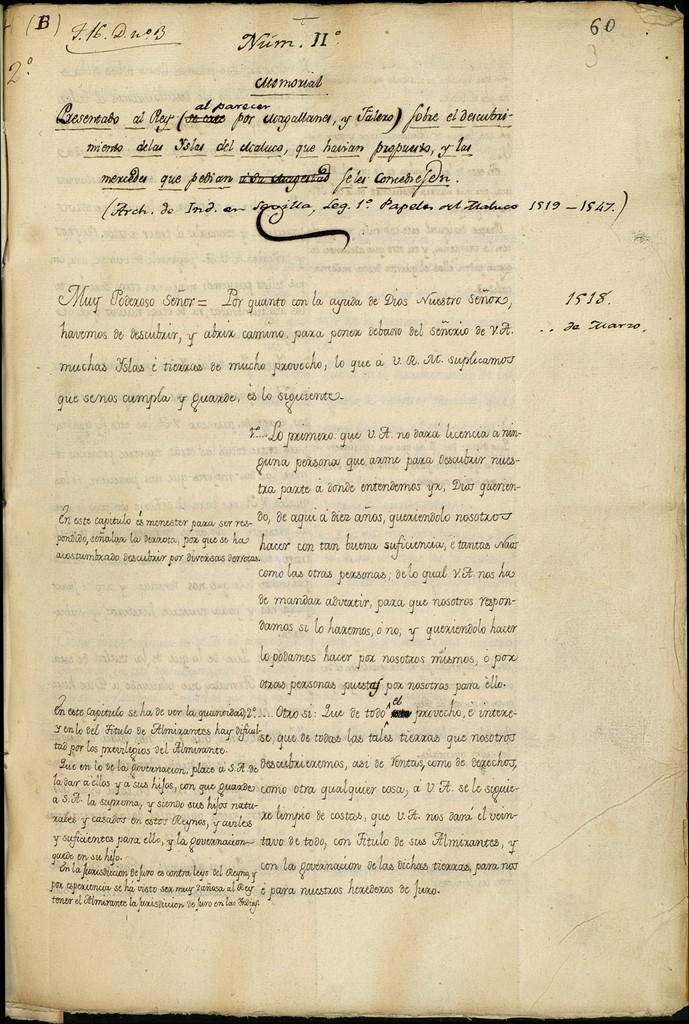 (B)
F. 16. D nº 3
60
3
2º
Núm. IIº
Memorial
al parecer
Presentado al Rey ( por Magallanes, y Falero) sobre el descubri-
miento delas Yslas del Maluco, que havian propuesto, y las
mercedes que pedian seles Concediesen.
(Arch. de Ind. en Sevilla, Leg. 1º Papeles del Maluco 1519-1547.)
Muy Poderoso Señor= Por quanto con la ayuda de Dios Nuestro Señor,
1518.
havemos de descubrir, y abrir camino, para poner debaxo del señorio de V.A.
.. de Marzo.
muchas Yslas é tierras de mucho provecho, lo que á V. R. M. suplicamos
que senos cumpla y guarde, es lo siguiente.
1º.... Lo primero que V. A. no dará licencia a nin-
guna persona que arme para descubrir nues-
tra parte á donde entendemos yr, Dios querien-
do, de aqui á diez años, queriendolo nosotros
hacer con tan buena suficiencia, é tantas Naos
como las otras personas, de lo qual V.A. nos ha
de mandar advertir, para que nosotros respon-
damos si lo haremos, ó no, y queriendolo hacer
lo podamos hacer por nosotros mismos, ó por
otras personas puestas por nosotros para ello.
En este capitulo és menester para ser res-
pondido, señalar la derrota, por que se ha
acostumbrado descubrir por diversas derrotas.
2º.... Otro si: Que de todo el provecho, é intere-
se, que de todas las tales tierras que nosotros
descubrieremos, asi de Ventas, como de derechos,
como otra qualquier cosa, á V. A. se le siguie-
re limpio de costas, que V.A. nos dará el vein-
tavo de todo, con Titulo de sus Almirantes, y
con la governacion de las dichas tierras, para nos
é para nuestros herederos de Juro.
En este capitulo se ha de ver la quantidad,
y en lo del Titulo de Almirantes hay dificul-
tad por los previlegios del Almirante.
Que en lo de la governacion, place á S.A. de
la dar á ellos y a sus hijos, con que guarde
a S.A. la suprema, y siendo sus hijos natu-
rales y casados en estos Reynos, y aviles
y suficientes para ello, y la governacion
quede en su hijo.
En la Jurisdiccion de Juro es contra leyes del Reyno, y
por esperiencia se há visto ser muy dañosa al Rey
tener el Almirante la Jurisdicion de Juro en las Yndias.